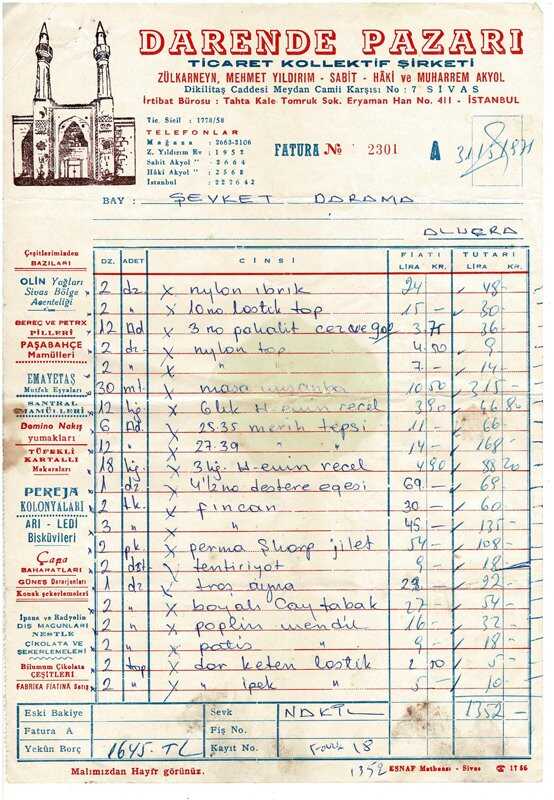 DARENDE PAZARI
TİCARET KOLLEKTİF ŞİRKETİ
ZÜLKARNEYN, MEHMET YILDIRIM - SABİT - HÂKİ ve MUHARREM AKYOL
Dikilitaş Caddesi Meydan Camii Karşısı No : 7 SİVAS
İrtibat Bürosu : Tahta Kale Tomruk Sok. Eryaman Han No. 411 - İSTANBUL
Tic. Sicil : 1778/58
TELEFONLAR
Mağaza : 2663-2106
Z. Yıldırım Ev : 1952
Sabit Akyol " : 2664
Hâki Akyol " : 2568
İstanbul : 227642
FATURA No 2301 A 31/5/1971
BAY : ŞEVKET DARAMA
ALUÇRA
Çeşitlerimizden
BAZILARI
OLİN Yağları
Sivas Bölge
Acenteliği
BEREÇ ve PETRX
PİLLERİ
PAŞABAHÇE
Mamülleri
EMAYETAŞ
Mutfak Eşyaları
SANTRAL
MAMÜLLERİ
Domino Nakış
yumakları
TÜFEKLİ
KARTALLI
Makaralar
PEREJA
KOLONYALARI
ARI - LEDİ
Bisküvileri
Çapa
BAHARATLARI
GÜNEŞ
Konak şekerlemeleri
İpana ve Radyolin
DİŞ MACUNLARI
NESTLE
ÇİKOLATA ve
ŞEKERLEMELERİ
Bilumum Çikolata
ÇEŞİTLERİ
FABRİKA FİATINA Satış
DZ. ADET CİNSİ FİATI TUTARI
LİRA KR. LİRA KR.
2 dz x nylon ibrik 24 - 48 -
2 " x 10 no lastik top 15 - 30 -
12 Ad. x 3 no cezve 3.75 36 -
2 dz x nylon top 4.50 9
2 " x " " 7 - 14 -
30 mt. x masa muşamba 10.50 315 -
12 kğ. x 6 lık H-emin reçel 390 46.80
6 Ad. x 25.35 merih tepsi 11 - 66 -
12 " x 27.39 " " 14 - 168 -
18 kğ. x 3 kğ. H-emin reçel 490 88 20
1 dz x 4½ no destere eğesi 69 - 69 -
2 tk. x fincan 30 - 60 -
3 " x " 45 - 135 -
2 pk. x perma Sharp jilet 54 - 108 -
2 x tentiriyot 9 - 18 -
1 dz x traş ayna
2 " x boyalı Çay tabak 27 - 54 -
2 " x poplin mendil 16 - 32 -
2 " x patis 9 - 18 -
2 top x dar keten lastik 2.50 5 -
2 " x " ipek 5 - 10 -
Eski Bakiye
Fatura A
Yekün Borç 1645.- TL
Sevk NAKİL
Fiş No.
Kayıt No. 18
1352 -
1352
Malımızdan Hayır görünüz.
ESNAF Matbaası - Sivas ☎ 1756